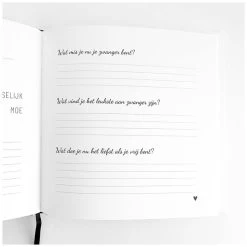 SELIJK
MOE
Wat mis je nu je zwanger bent?
Wat vind je het leukste aan zwanger zijn?
Wat doe je nu het liefst als je vrij bent?